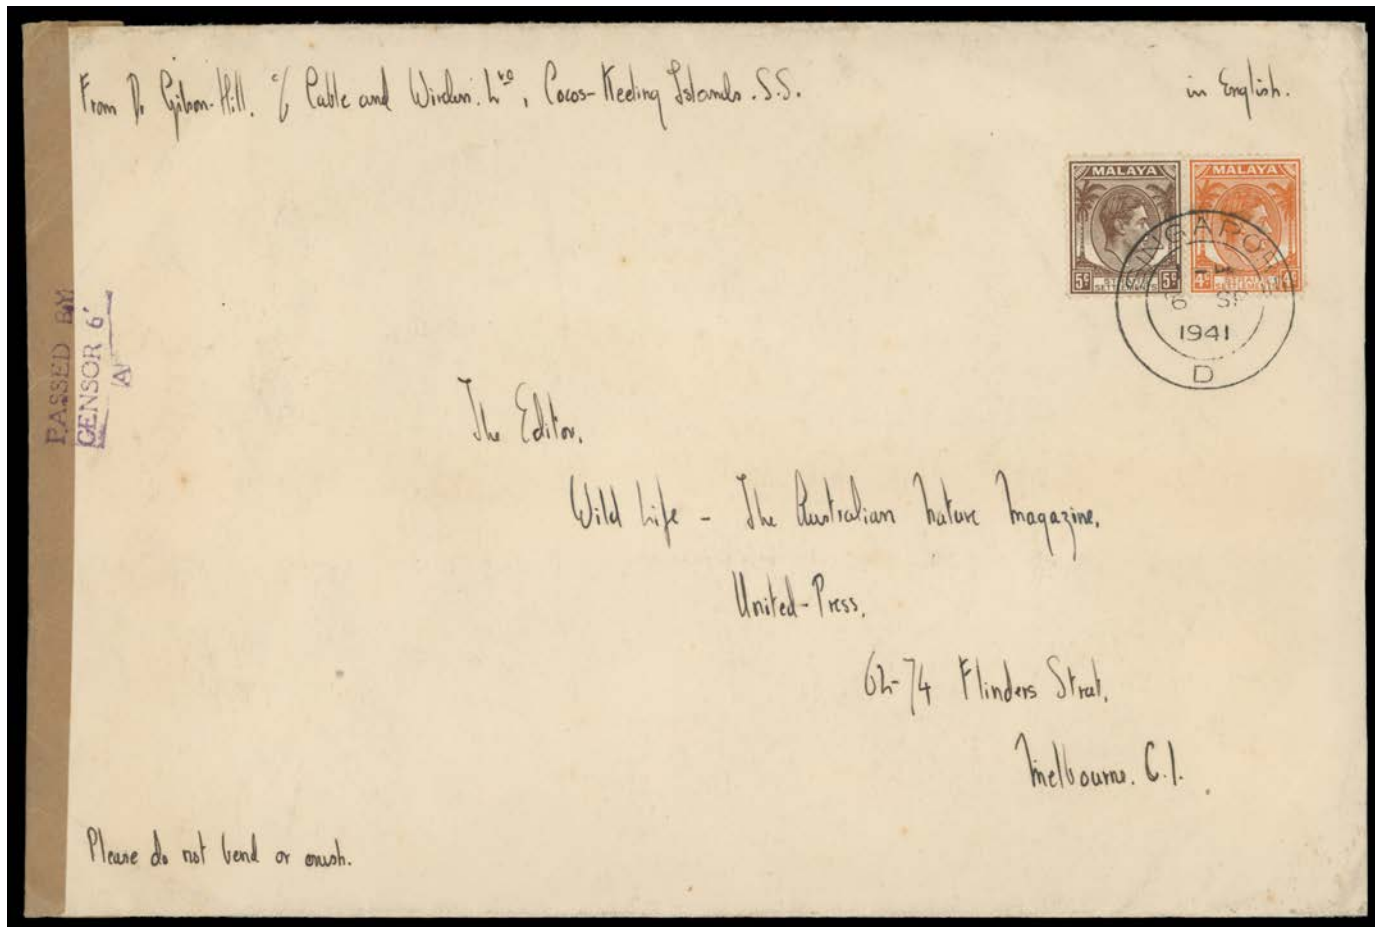 From Dr Gibson-Hill. c/o Cable and Wireless. Ltd, Cocos-Keeling Islands. S.S.
in English.
MALAYA MALAYA
5c STRAITS SETTLEMENTS 5c 4c STRAITS SETTLEMENTS 4c
SINGAPORE
6 SP
1941
D
PASSED BY
CENSOR 6
A
The Editor,
Wild Life - The Australian Nature Magazine,
United-Press,
62-74 Flinders Street,
Melbourne. C.1.
Please do not bend or crush.